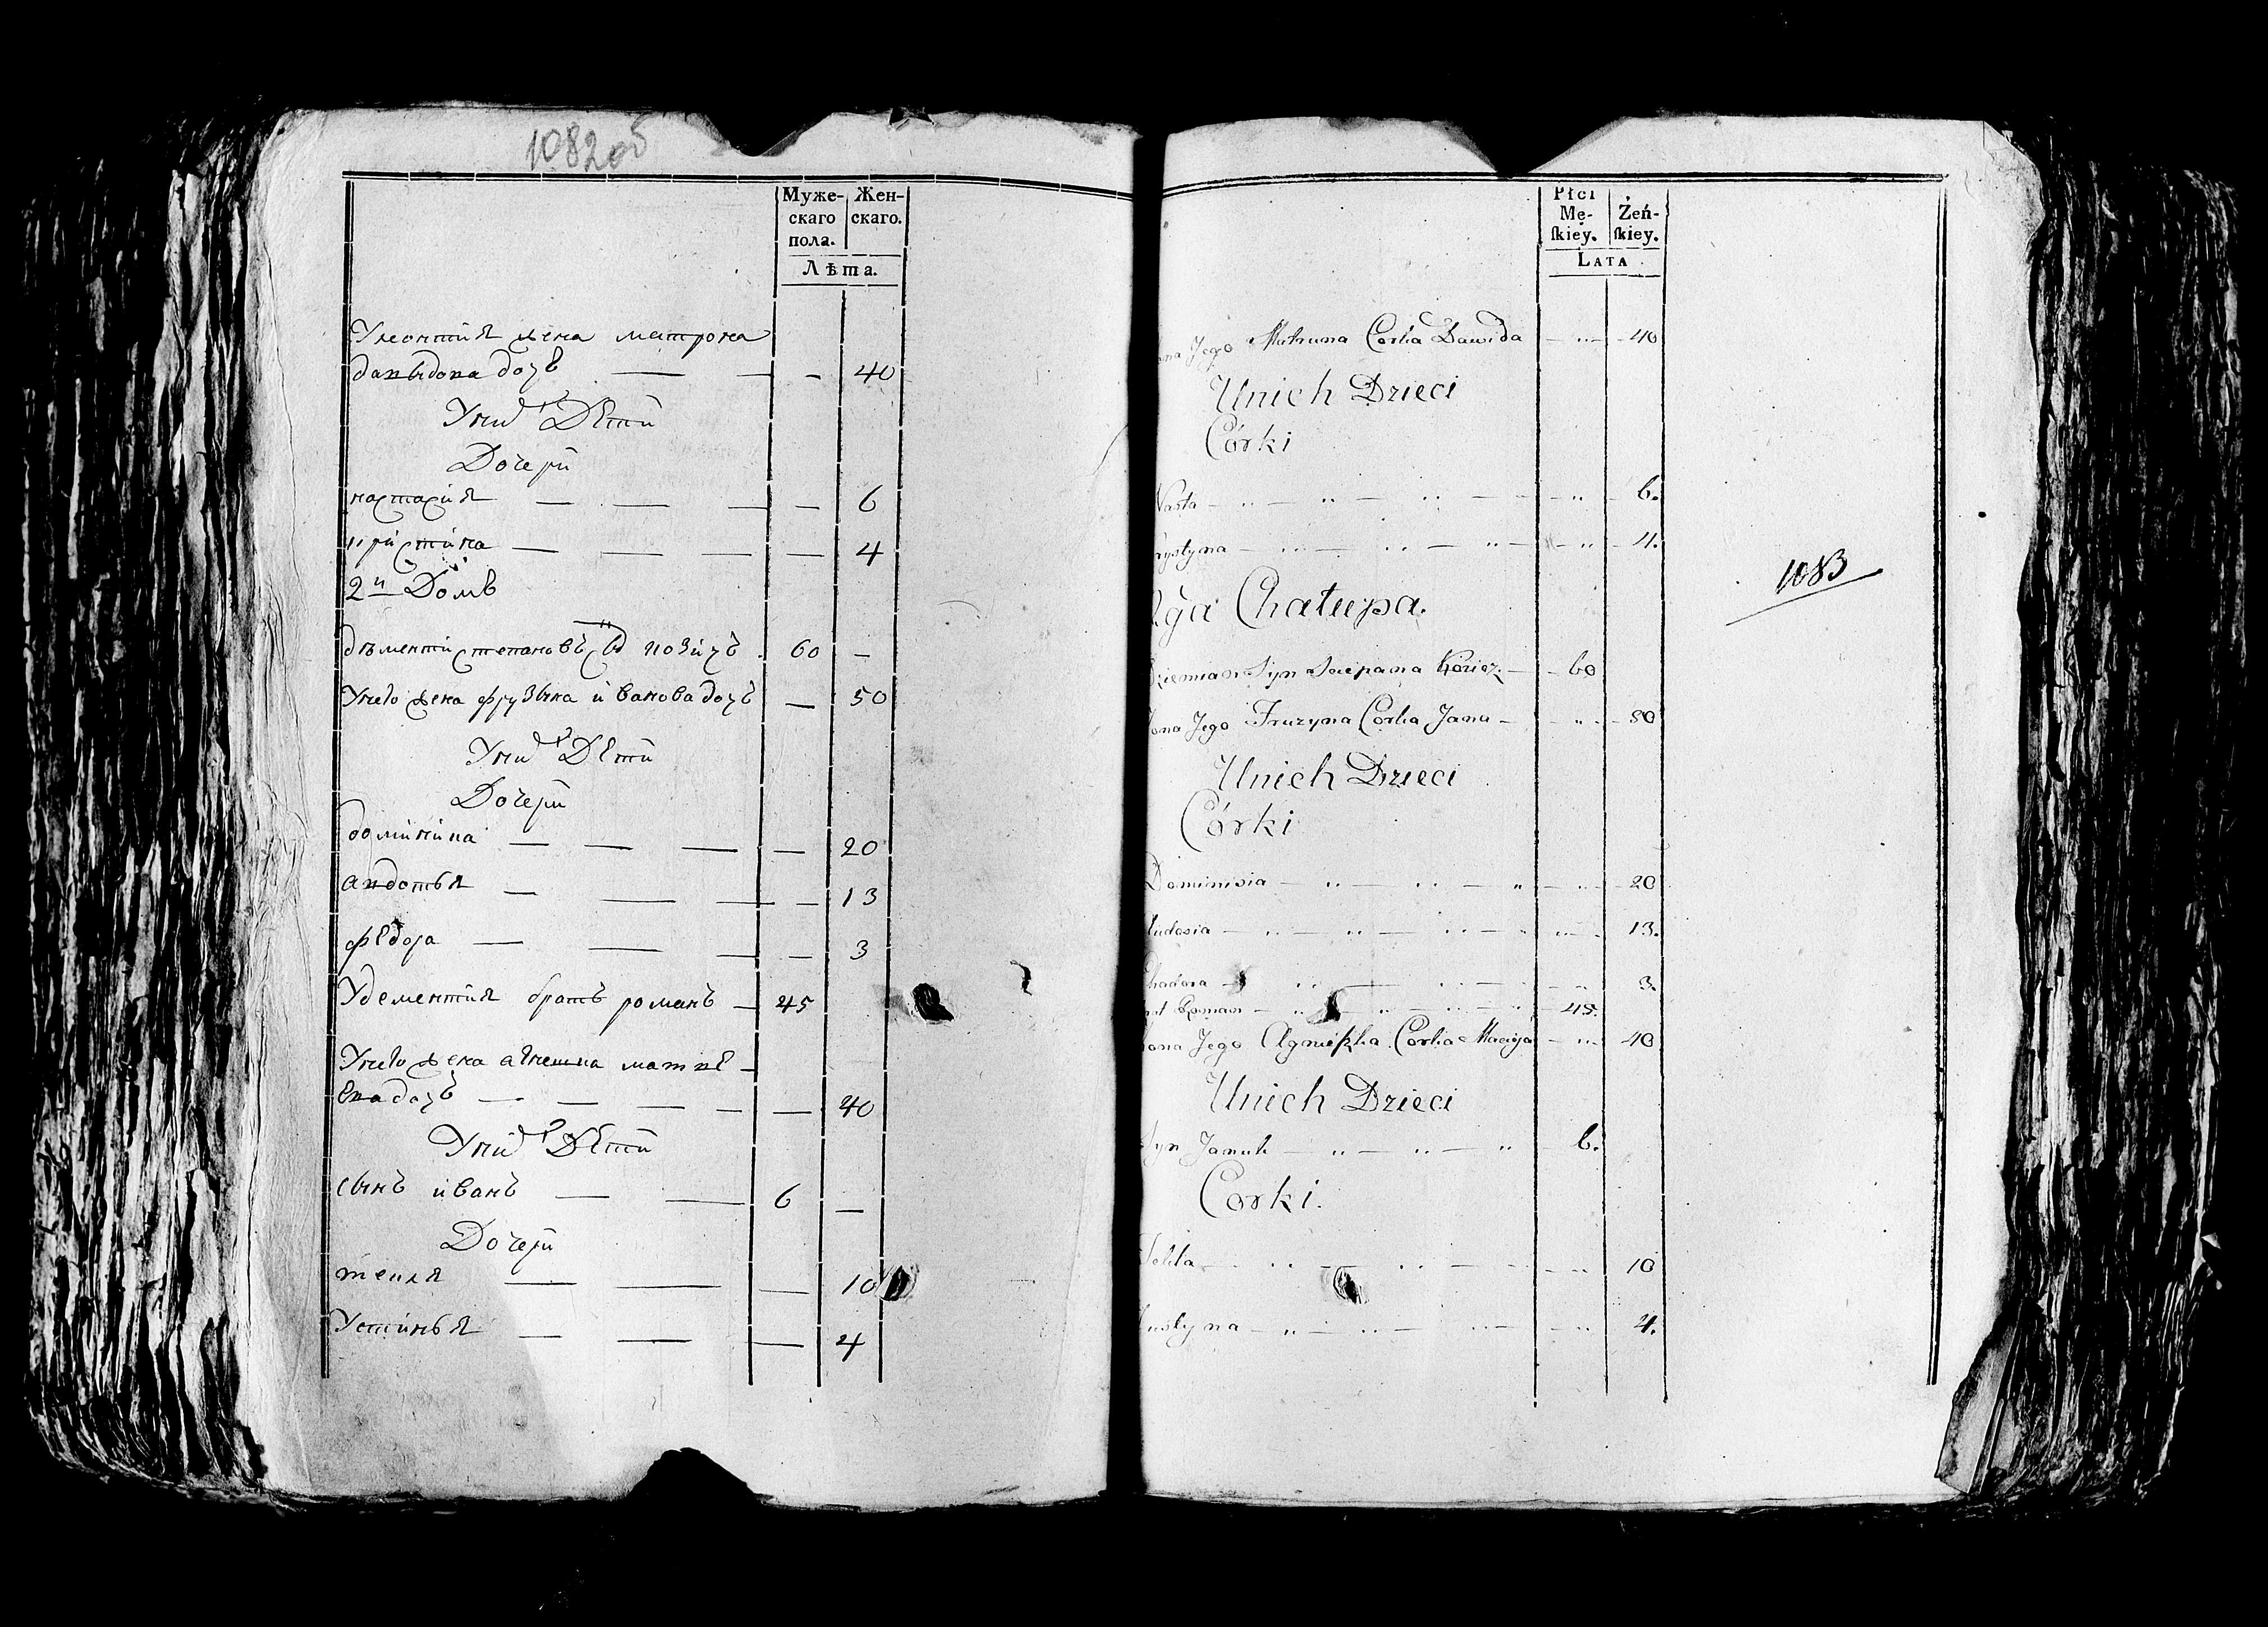 1082об
Муже-
скаго
пола.
Жен-
скаго.
Лѣта.
Улеонтия жена матрона
давыдова дочь — — — 40
Уних Дети
Дочери
настасия — — — — 6
кристина — — — — 4
2й Домъ
дѣменти степановъ сы козичъ 60 —
Унего жена фрузына иванова дочь — 50
Уних Дети
Дочери
доминика — — — — 20
авдотья — — — — 13
федора — — — — 3
Удементия братъ романъ — 45
Унего жена агнешка матве
ева дочь — — — — — 40
Уних Дети
сынъ иванъ — — 6 —
Дочери
текля — — — 10
Устинья — — — 4
Płci
Mę-
skiey.
Żeń-
skiey.
LATA
ona Jego Matruna Corka Dawida — 40
Unich Dzieci
Córki
Nasta — 6.
rystyna — 4.
2ga Chałupa.
Dziemian Syn Sciepana Kozicz — 60
ona Jego Fruzyna Corka Jana — 50
Unich Dzieci
Córki
Dominisia — 20
Eudosia — 13.
Chadora — 3.
rat Roman — 45.
ona Jego Agnieszka Corka Macieja — 40
Unich Dzieci
Syn Januk — 6.
Corki.
Tekla — 10
ustyna — 4.
1083